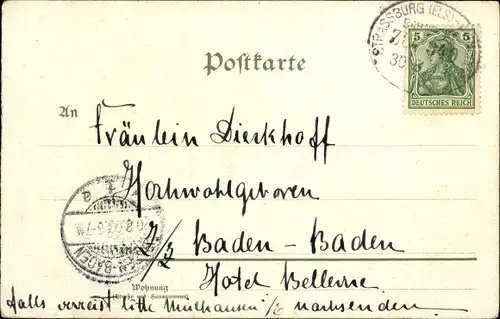 STRASSBURG (ELS)
5 5
DEUTSCHES REICH
Postkarte
An
Fräulein Dieckhoff
Hochwohlgeboren
z/z Baden-Baden
Hotel Bellevue
BADEN-BADEN
Wohnung
(Straße und Hausnummer)
Falls verreist bitte Mülhausen i/E nachsenden.